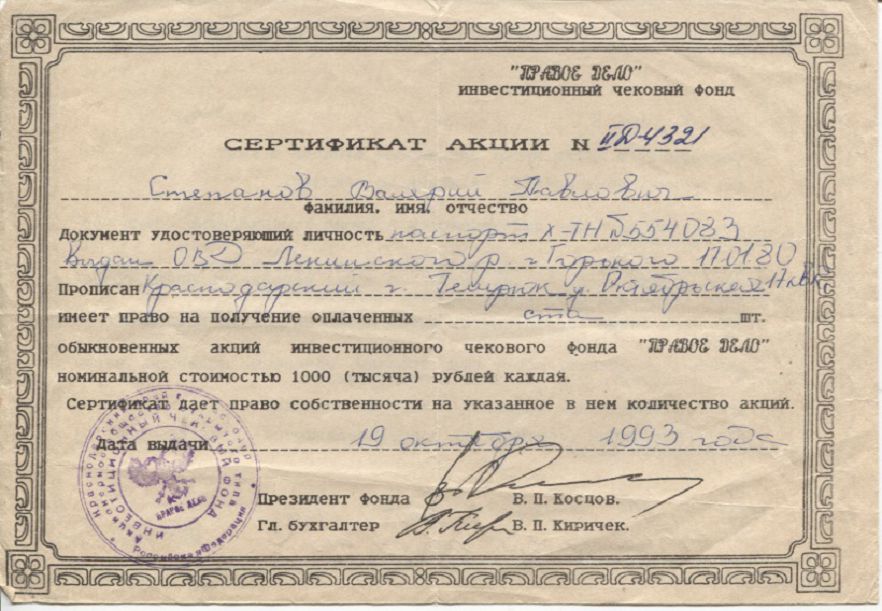 "ПРАВОЕ ДЕЛО"
ИНВЕСТИЦИОННЫЙ ЧЕКОВЫЙ ФОНД
СЕРТИФИКАТ АКЦИИ N IIД-4321
Степанов Валерий Павлович
ФАМИЛИЯ. ИМЯ. ОТЧЕСТВО
Документ удостоверяющий личность паспорт X-ТН №554083
Выдан ОВД Ленинского р. г. Горького 170180
Прописан Краснодарский г. Темрюк у. Октябрьская
имеет право на получение оплаченных ста шт.
обыкновенных акций инвестиционного чекового фонда "ПРАВОЕ ДЕЛО"
номинальной стоимостью 1000 (тысяча) рублей каждая.
Сертификат дает право собственности на указанное в нем количество акций.
Дата выдачи 19 октября 1993 года
Президент фонда В. П. Косцов.
Гл. бухгалтер В. П. Киричек.
ИНВЕСТИЦИОННЫЙ ЧЕКОВЫЙ ФОНД
ПРАВОЕ ДЕЛО
Российская Федерация